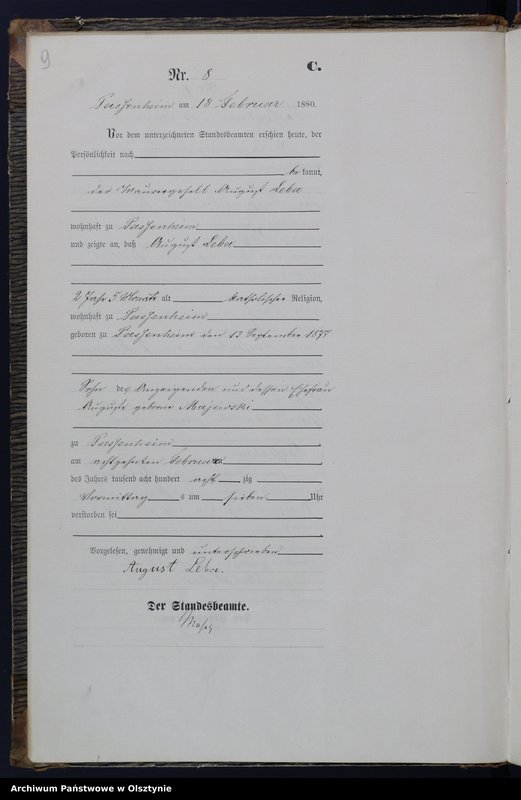 9
C.
Nr. 8
Passenheim am 18 Februar 1880.
Vor dem unterzeichneten Standesbeamten erschien heute, der
Persönlichkeit nach
be kannt,
der Maurergesell August Leba
wohnhaft zu Passenheim
und zeigte an, daß August Leba
2 Jahr 5 Monate alt katholischer Religion,
wohnhaft zu Passenheim
geboren zu Passenheim den 12 September 1877
Sohn des Anzeigenden und dessen Ehefrau
Auguste geborne Majewski
zu Passenheim
am achtzehnten Februar
des Jahres tausend acht hundert acht zig
Vormittag s um sieben Uhr
verstorben sei
Vorgelesen, genehmigt und unterschrieben
August Leba.
Der Standesbeamte.
Archiwum Państwowe w Olsztynie